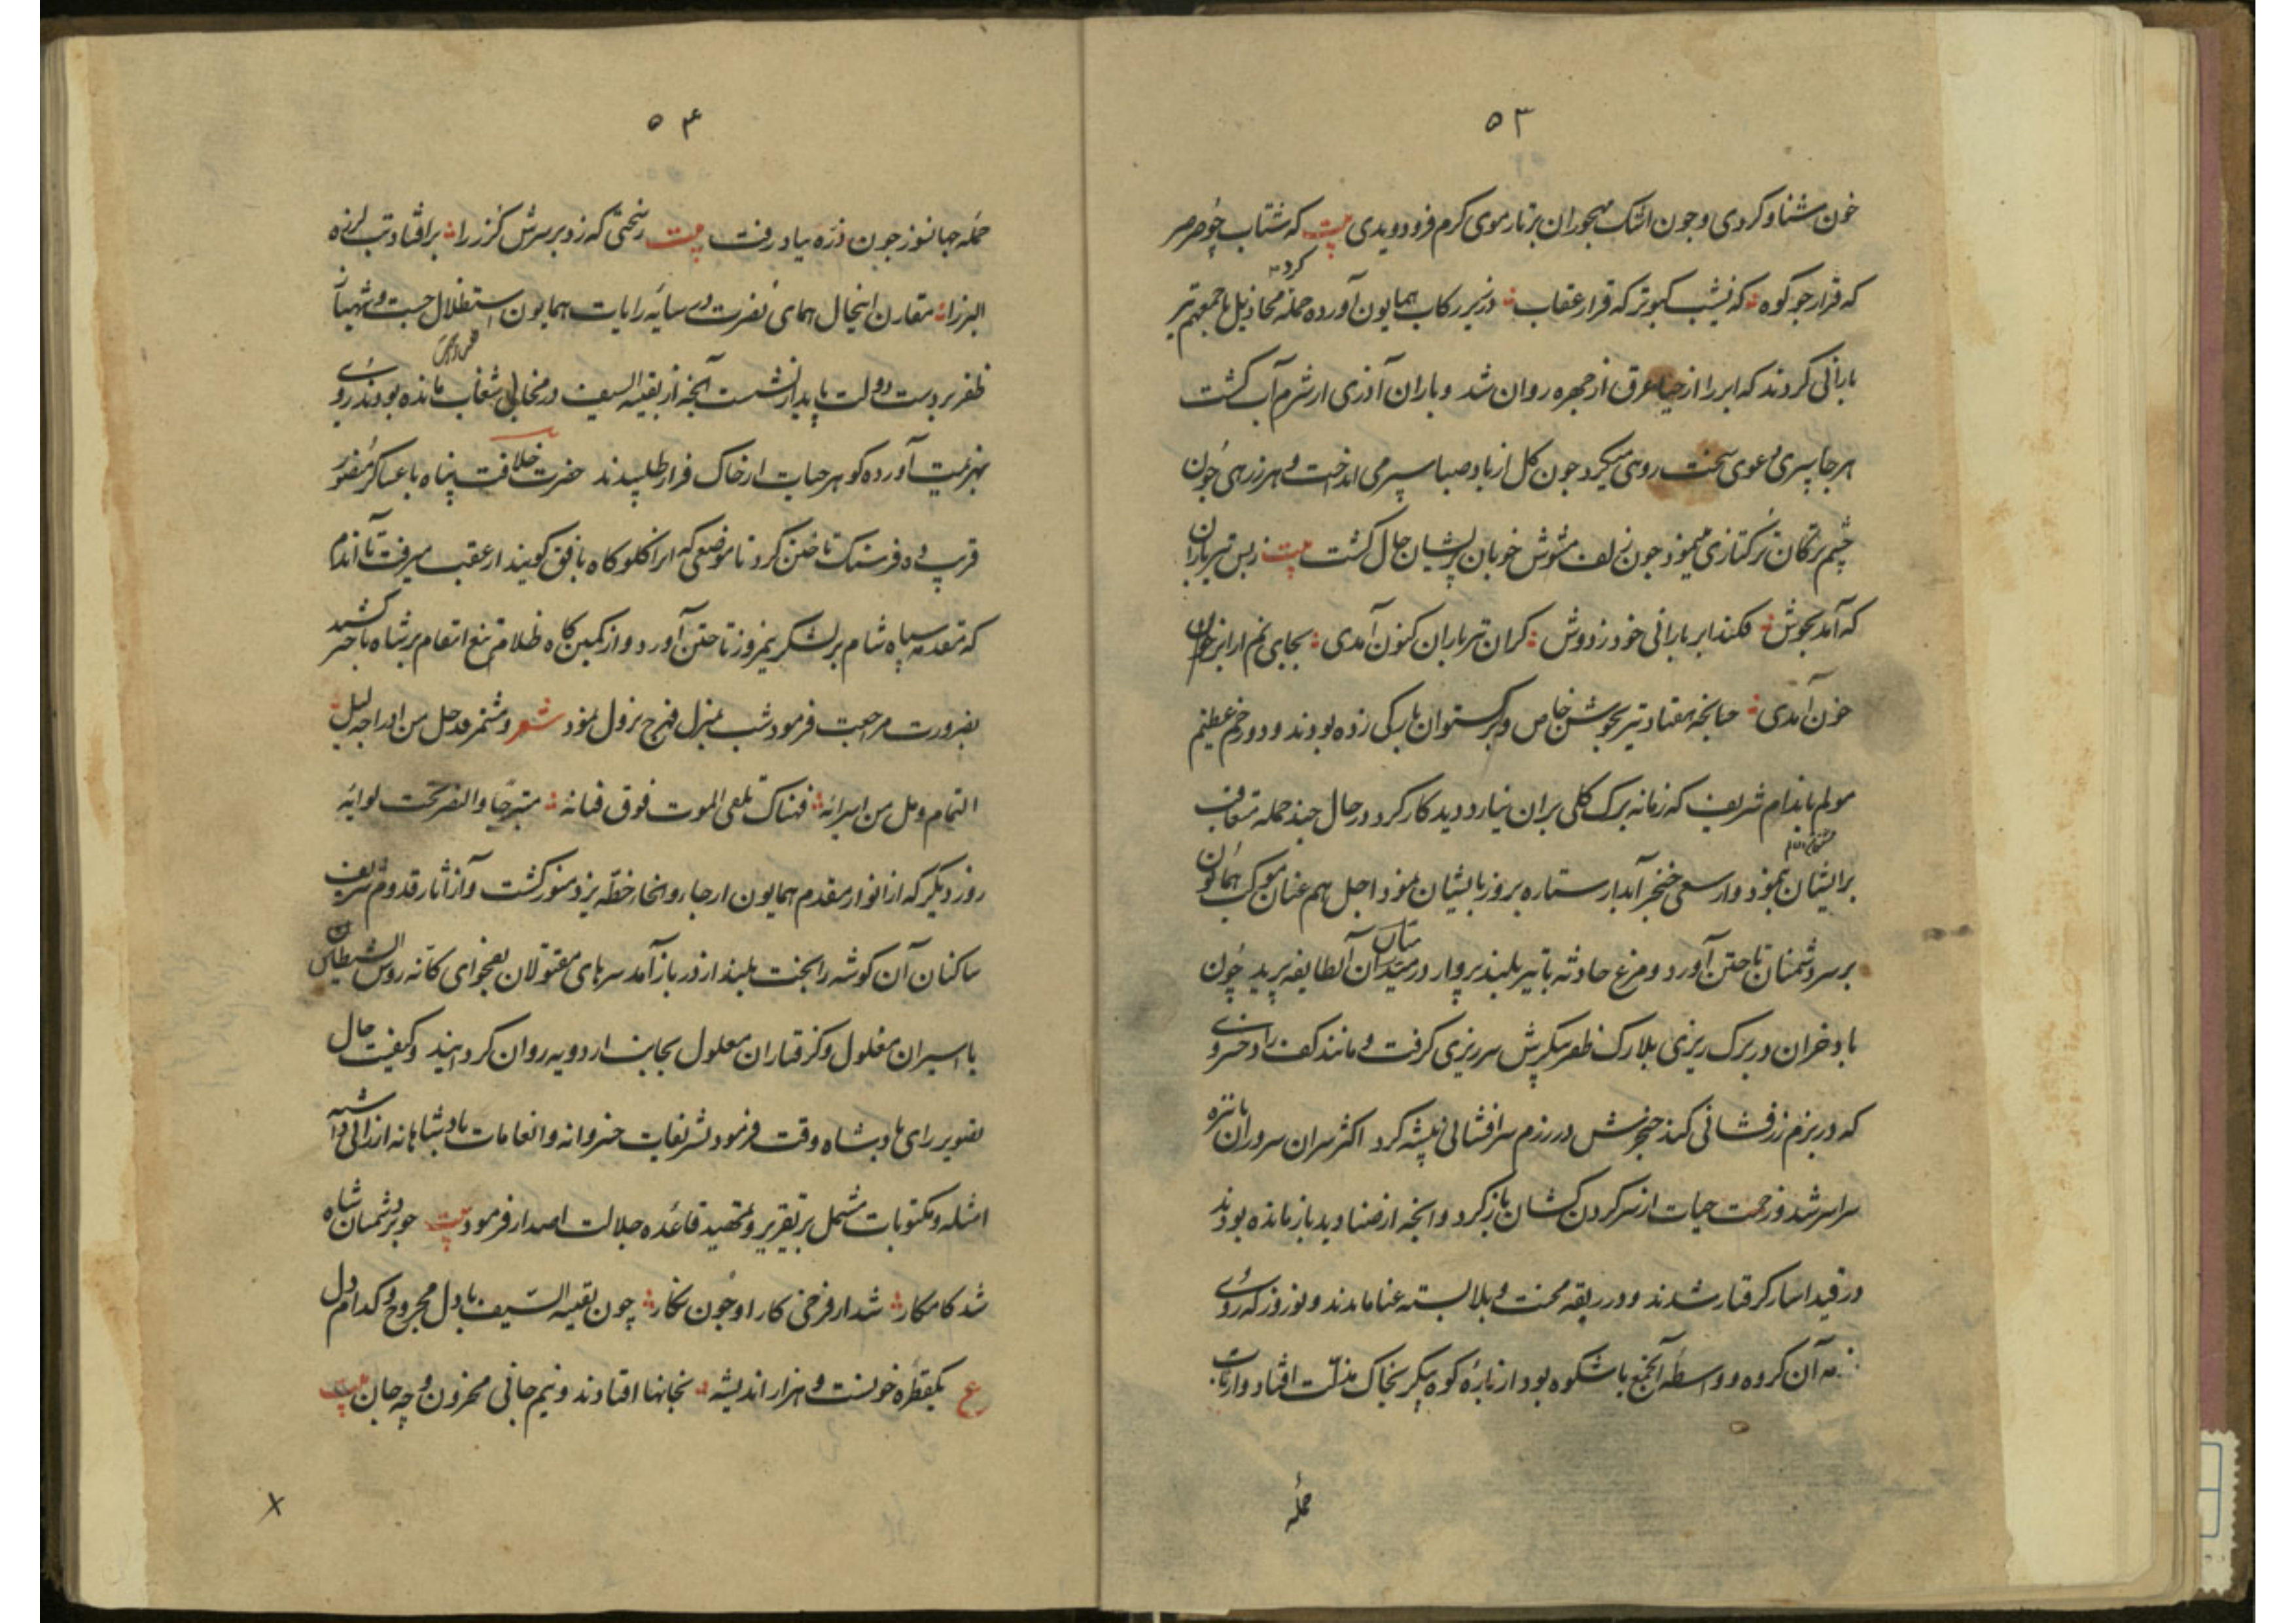 ۵۳
خون شناو کردی و جون اشک مهجوران بر تار موی کرم فرو دویدی بیت که شتاب چو صرصر
که قرار جو کوه که نشیب کبوتر که فراز عقاب در زیر رکاب همایون آورده حمله
کرد
بارانی کردند که ابر را از حیا عرق از جهره روان شد و باران آذری از شرم آب کشت
هر جا سپری دعوی سخت رویی میکرد جون کل از باد صبا سپر می انداخت و هر زرهی جون
چشم ترکان ترکتازی مینمود جون زلف مشوش خوبان پریشان حال کشت بیت ز بس تیر باران
که آمد بجوش فکند ابر بارانی خود ز دوش کر آن تیر باران کنون آمدی بجای نم از ابر خون
خون آمدی جنانجه هفتاد تیر بجوشن خاص و برکستوان بارکی زده بودند و دو زخم عظیم
مولم باندام شریف که زمانه برک کلی بران نیارد دید کار کرد در حال جند حمله متعاقب
بر ایشان نمود و از سعی خنجر آبدار ستاره بروز بایشان نمود اجل هم عنان موکب همایون
بر سر دشمنان تاختن آورد و مرغ حادثه با تیر بلند پرواز در میدان آن طایفه پرید چون
باد خزان در برک ریزی بلارک ظفر پیکرش سرریزی کرفت و مانند کف راد خسروی
که در بزم زرفشانی کند خنجرش در رزم سرافشانی پیشه کرد اکثر سران سروران با نیزه
سراسر شد و زحمت حیات از سر کردن کشان باز کرد و انجه از صنادید باز مانده بودند
در قید اسار کرفتار شدند و در ربقه محنت و بلا بسته عنا ماندند و نوروز که روی
آن کروه و واسطه آن جمع باشکوه بود از باره کوه پیکر بخاک مذلت افتاد و از تاب
حمله
۵۴
حمله جهانسوز جون ذره بباد رفت بیت ز سختی که زد بر سرش کرز را بر افتاد تب لرزه
البرز را مقارن اینحال همای نصرت در سایه رایات همایون استظلال جست و شهباز
ظفر بر دست دولت پایدار نشست آنجه از بقیه السیف در مخالب شغاب مانده بودند روی
بهزیمت آورده کوهر حیات از خاک فرار طلبیدند حضرت خلافت پناه با عساکر منصور
قریب ده فرسنک تاختن کرد تا موضعی که انرا کلوکاه بافق کویند از عقب میرفت تا آندم
که مقدمه سپاه شام بر لشکر نیمروز تاختن آورد و از کمین کاه ظلام تیغ انتقام بر شاه باختر کشید
بضرورت مراجعت فرمود شب بمنزل فهرج نزول نمود شعر
روز دیکر که از انوار مقدم همایون ارجا و انحا خطه یزد منور کشت و از آثار قدوم شریف
ساکنان آن کوشه را بخت بلند از در باز آمد سرهای مقتولان بفحوای کانه روس الشیاطین
با اسیران مغلول و کرفتاران معلول بجانب اردو به روان کردانید و کیفیت حال
بضویر رای پادشاه وقت فرمود تشریفات خسروانه و انعامات پادشاهانه ارزانی داشته
امثله و مکتوبات مشتمل بر تقریر و تمهید قاعده جلالت اصدار فرمود بیت جو بر دشمنان شاه
شد کامکار شد از فرخی کار او چون نکار چون بقیه السیف با دل مجروح و کدام دل
ع یکقطره خونست و هزار اندیشه بخانها افتادند و نیم جانی محزون و چه جان بیت